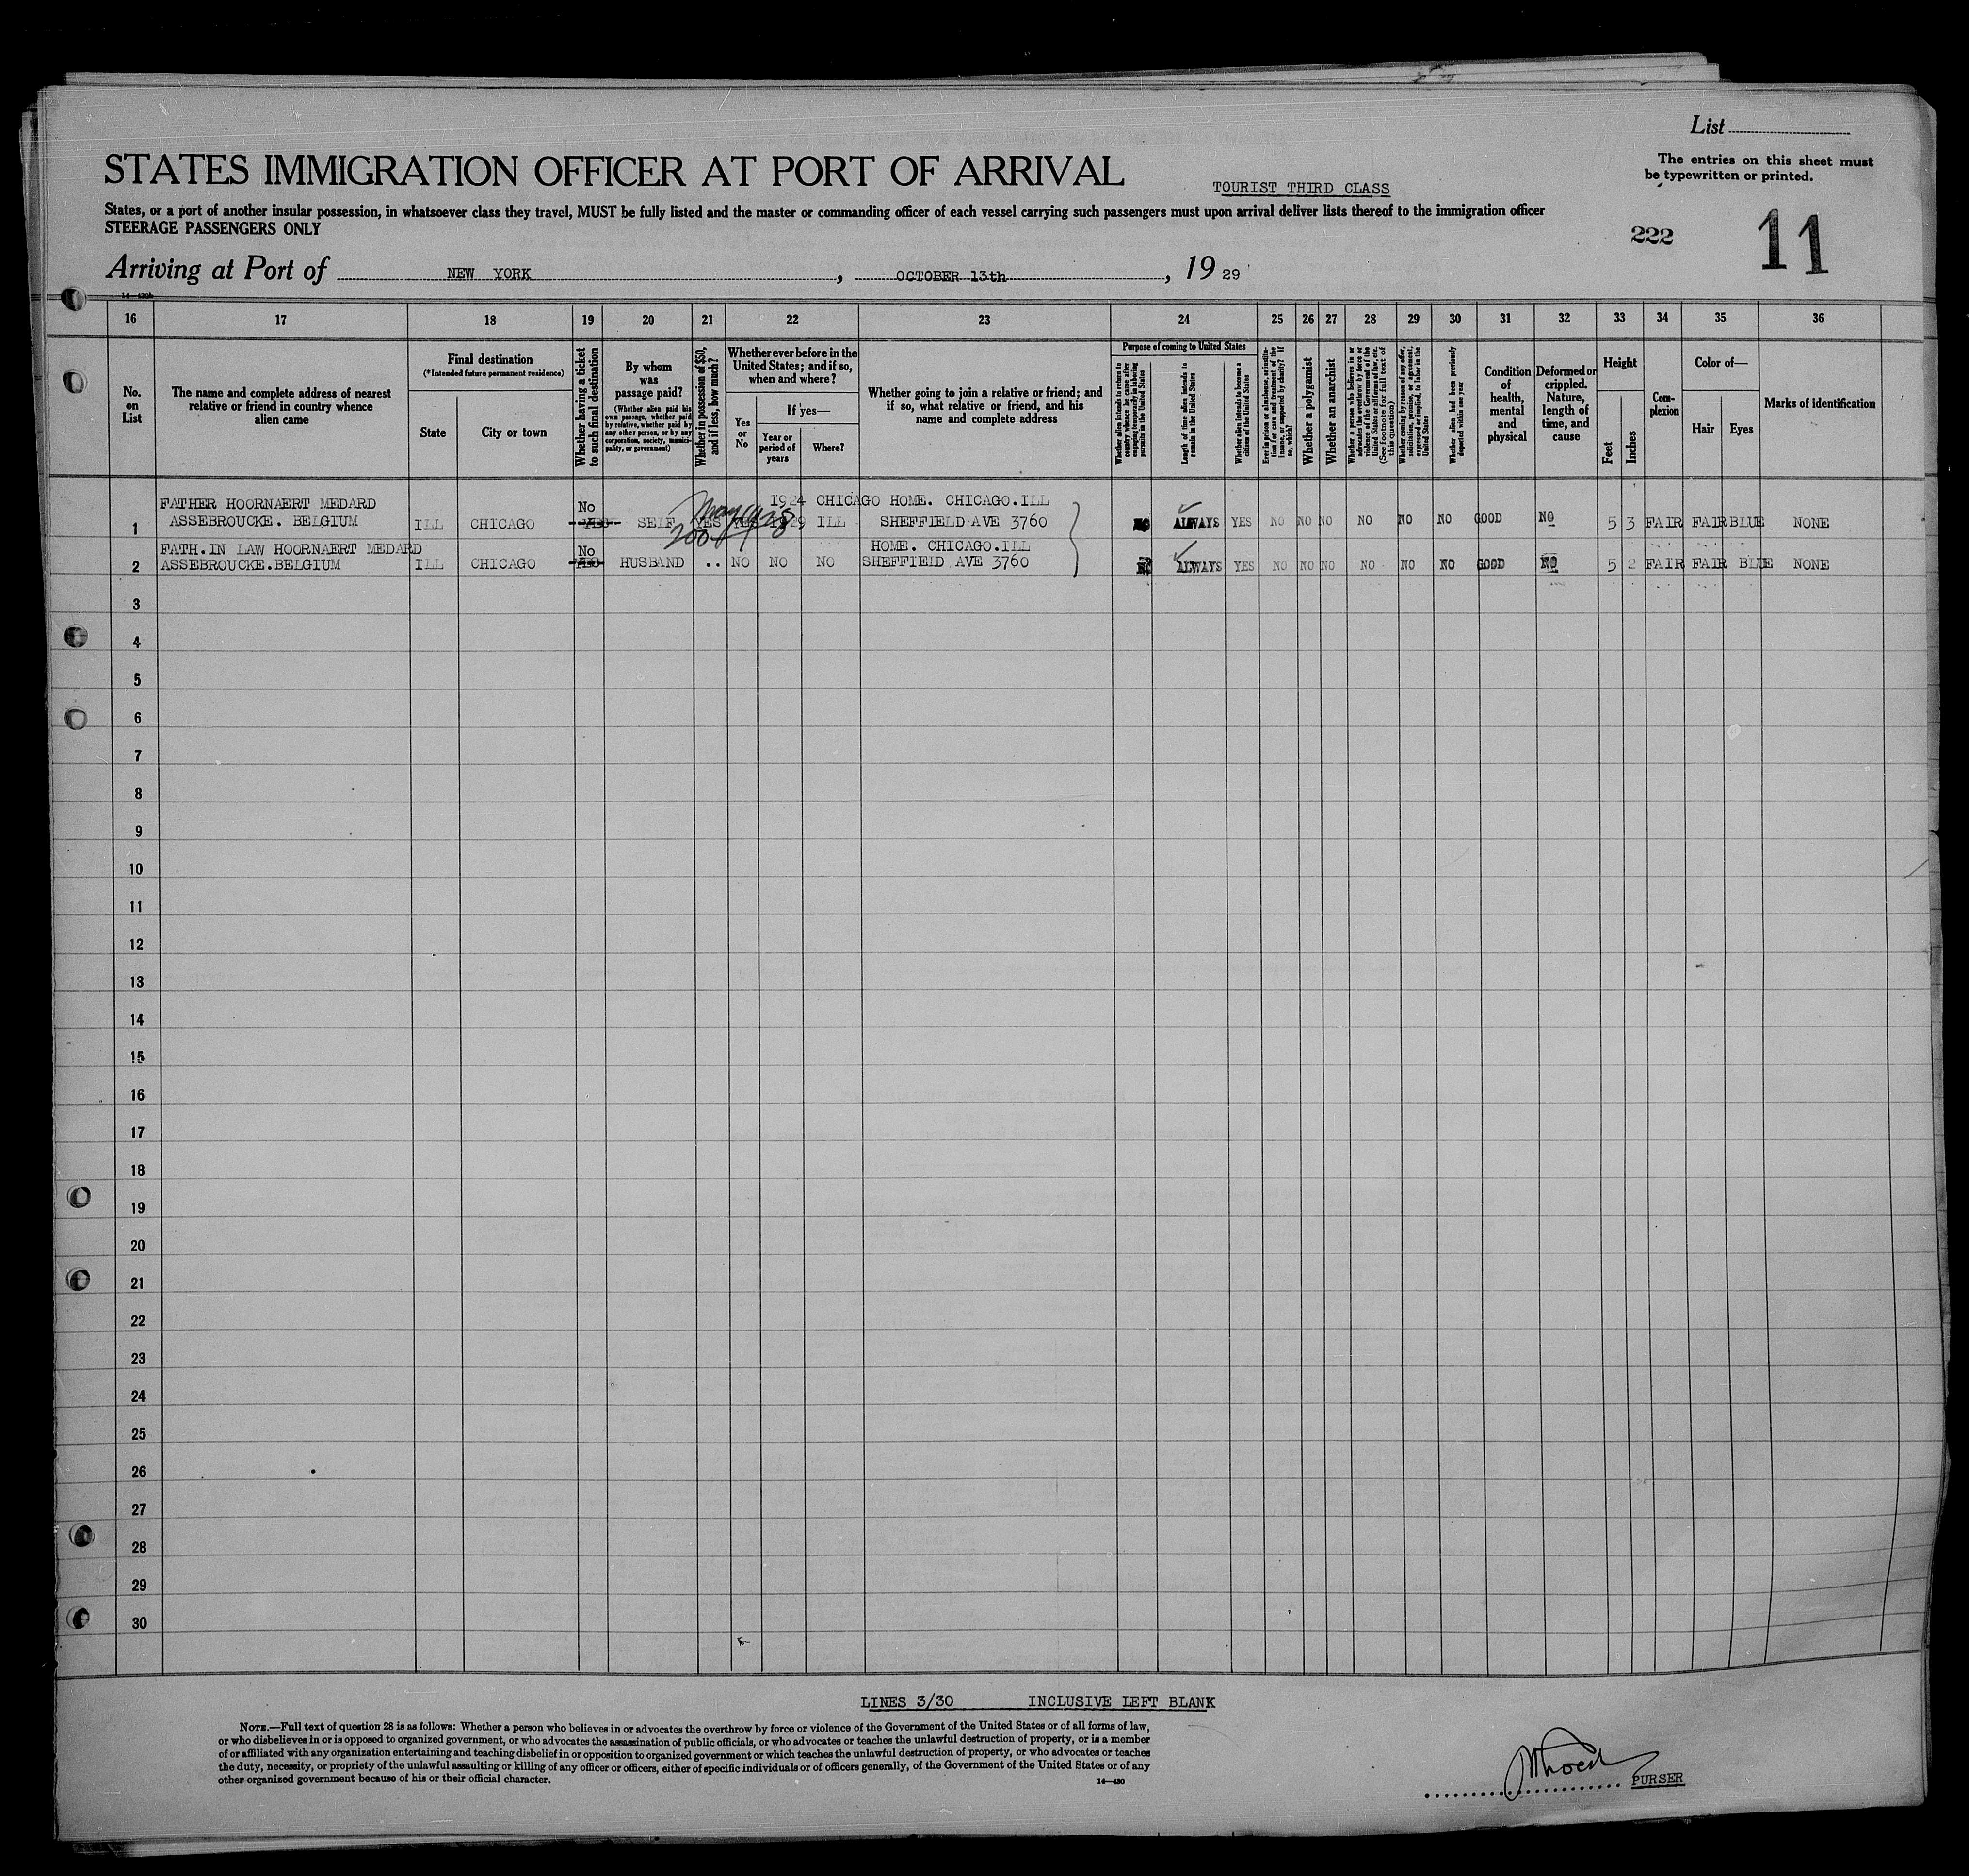 List
The entries on this sheet must
be typewritten or printed.
STATES IMMIGRATION OFFICER AT PORT OF ARRIVAL
TOURIST THIRD CLASS
States, or a port of another insular possession, in whatsoever class they travel, MUST be fully listed and the master or commanding officer of each vessel carrying such passengers must upon arrival deliver lists thereof to the immigration officer
STEERAGE PASSENGERS ONLY
222 11
Arriving at Port of NEW YORK , OCTOBER 13th , 19 29
16 17 18 19 20 21 22 23 24 25 26 27 28 29 30 31 32 33 34 35 36
No.
on
List
The name and complete address of nearest
relative or friend in country whence
alien came
Final destination
(*Intended future permanent residence)
State
City or town
Whether having a ticket
to such final destination
By whom
was
passage paid?
(Whether alien paid his
own passage, whether paid
by relative, whether paid by
any other person, or by any
corporation, society, munici-
pality, or government)
Whether in possession of $50,
and if less, how much?
Whether ever before in the
United States; and if so,
when and where?
Yes
or
No
If yes—
Year or
period of
years
Where?
Whether going to join a relative or friend; and
if so, what relative or friend, and his
name and complete address
Purpose of coming to United States
Whether alien intends to return to
country whence he came after
engaging temporarily in laboring
pursuits in the United States
Length of time alien intends to
remain in the United States
Whether alien intends to become a
citizen of the United States
Ever in prison or almshouse, or institu-
tion for care and treatment of the
insane, or supported by charity? If
so, which?
Whether a polygamist
Whether an anarchist
Whether a person who believes in or
advocates the overthrow by force or
violence of the Government of the
United States or all forms of law, etc.
(See footnote for full text of
this question)
Whether coming by reason of any offer,
solicitation, promise, or agreement,
expressed or implied, to labor in the
United States
Whether alien had been previously
deported within one year
Condition
of
health,
mental
and
physical
Deformed or
crippled.
Nature,
length of
time, and
cause
Height
Feet
Inches
Com-
plexion
Color of—
Hair
Eyes
Marks of identification
FATHER HOORNAERT MEDARD No 1924 CHICAGO HOME. CHICAGO.ILL
1 ASSEBROUCKE. BELGIUM ILL CHICAGO YES SELF YES YES 1929 ILL SHEFFIELD AVE 3760 NO ALWAYS YES NO NO NO NO NO NO GOOD NO 5 3 FAIR FAIR BLUE NONE
May 1928
200
FATH.IN LAW HOORNAERT MEDARD No HOME. CHICAGO.ILL
2 ASSEBROUCKE.BELGIUM ILL CHICAGO YES HUSBAND .. NO NO NO SHEFFIELD AVE 3760 NO ALWAYS YES NO NO NO NO NO NO GOOD NO 5 2 FAIR FAIR BLUE NONE
3
4
5
6
7
8
9
10
11
12
13
14
15
16
17
18
19
20
21
22
23
24
25
26
27
28
29
30
LINES 3/30 INCLUSIVE LEFT BLANK
NOTE.—Full text of question 28 is as follows: Whether a person who believes in or advocates the overthrow by force or violence of the Government of the United States or of all forms of law,
or who disbelieves in or is opposed to organized government, or who advocates the assassination of public officials, or who advocates or teaches the unlawful destruction of property, or is a member
of or affiliated with any organization entertaining and teaching disbelief in or opposition to organized government or which teaches the unlawful destruction of property, or who advocates or teaches
the duty, necessity, or propriety of the unlawful assaulting or killing of any officer or officers, either of specific individuals or of officers generally, of the Government of the United States or of any
other organized government because of his or their official character.
14—430
PURSER